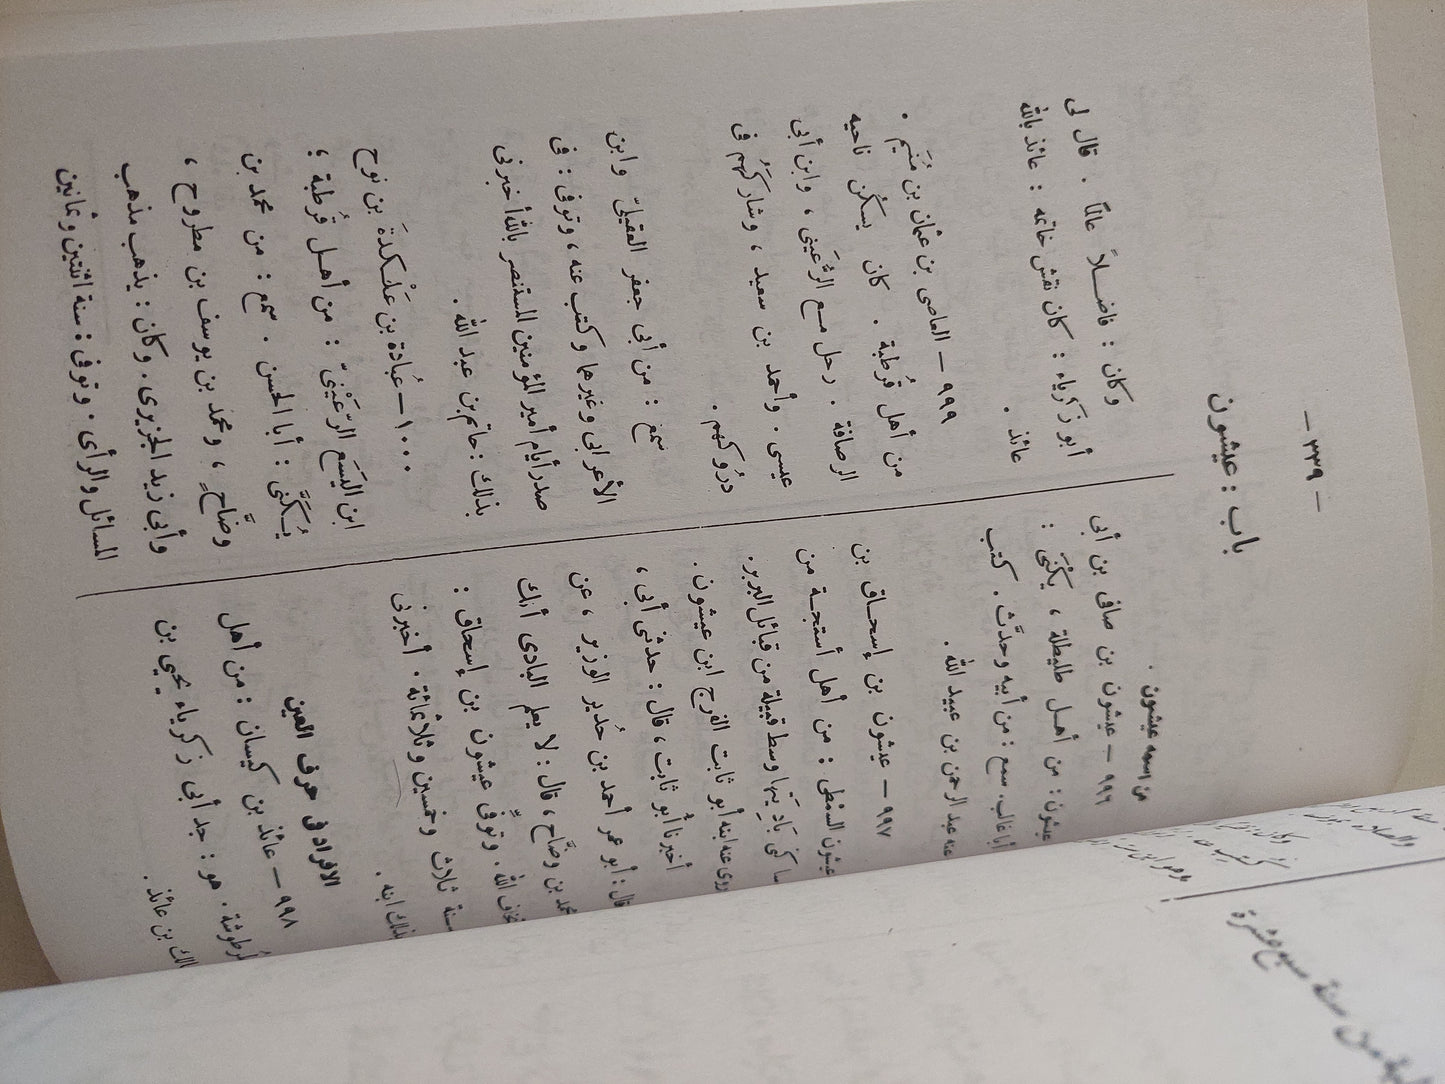 — ٣٣٩ —
باب : عيشون
من اسمه عيشون .
٩٩٦ — عيشون بن صافى بن أبى
عيشون : من أهل طليطلة ، يكْنَى :
أبا غالب. سمع : من أبيه وحدَّث . كتب
عنه عبد الرحمن بن عبيد الله .
٩٩٧ — عيشون بن إسحاق بن
عيشون : من أهل أستجة من
ساكنى بَادِيَتها وسط قبيلة من قبائل البربر.
روى عنه ابنه أبو ثابت الفرج ابن عيشون .
أخبرنا أبو ثابت ، قال : حدثنى أبى ،
قال : أبو عمر أحمد بن حُدير الوزير ، عن
محمد بن وضَّاح ، قال : لا يعلم البادى أنك
تخاف الله . وتوفَّى عيشون بن إسحاق :
سنة ثلاث وخمسين وثلاثمائة . أخبرنى
بذلك ابنه .
الافراد فى حرف العين
٩٩٨ — عائذ بن كيسان : من أهل
طرطوشة . هو : جد أبى زكرياء يحيى بن
مالك بن عائذ .
وكان : فاضلاً عالمًا . قال لى
أبو زكرياء : كان نقش خاتمه : عائذ بالله
عائذ .
٩٩٩ — العاصى بن عثمان بن مُتَيم .
من أهل قُرطبة . كان يسكُن ناحيه
الرصافة . رحل مع الرُّعَينى ، وابن أبى
عيسى . وأحمد بن سعيد ، وشاركَهُم فى
درُوكهم .
سمع : من أبى جعفر العقيلىّ وابن
الأعرابى وغيرهما وكتب عنه ، وتوفى : فى
صدر أيام أمير المؤمنين المستنصر بالله أخبرنى
بذلك : حاتم بن عبد الله .
١٠٠٠ — عُبادة بن عَلْكدَة بن نوح
ابن اليَسَع الرّعَيْنىّ : من أهل قُرطبة ؛
يُكَنَّى : أبا الحسن . سمع : من محمد بن
وضَّاحٍ ، ومحمد بن يوسف بن مطروح ،
وأبى زيد الجزيرى . وكان : يذهب مذهب
المسائل والرأى . وتوفى : سنة اثنتين وثمانين